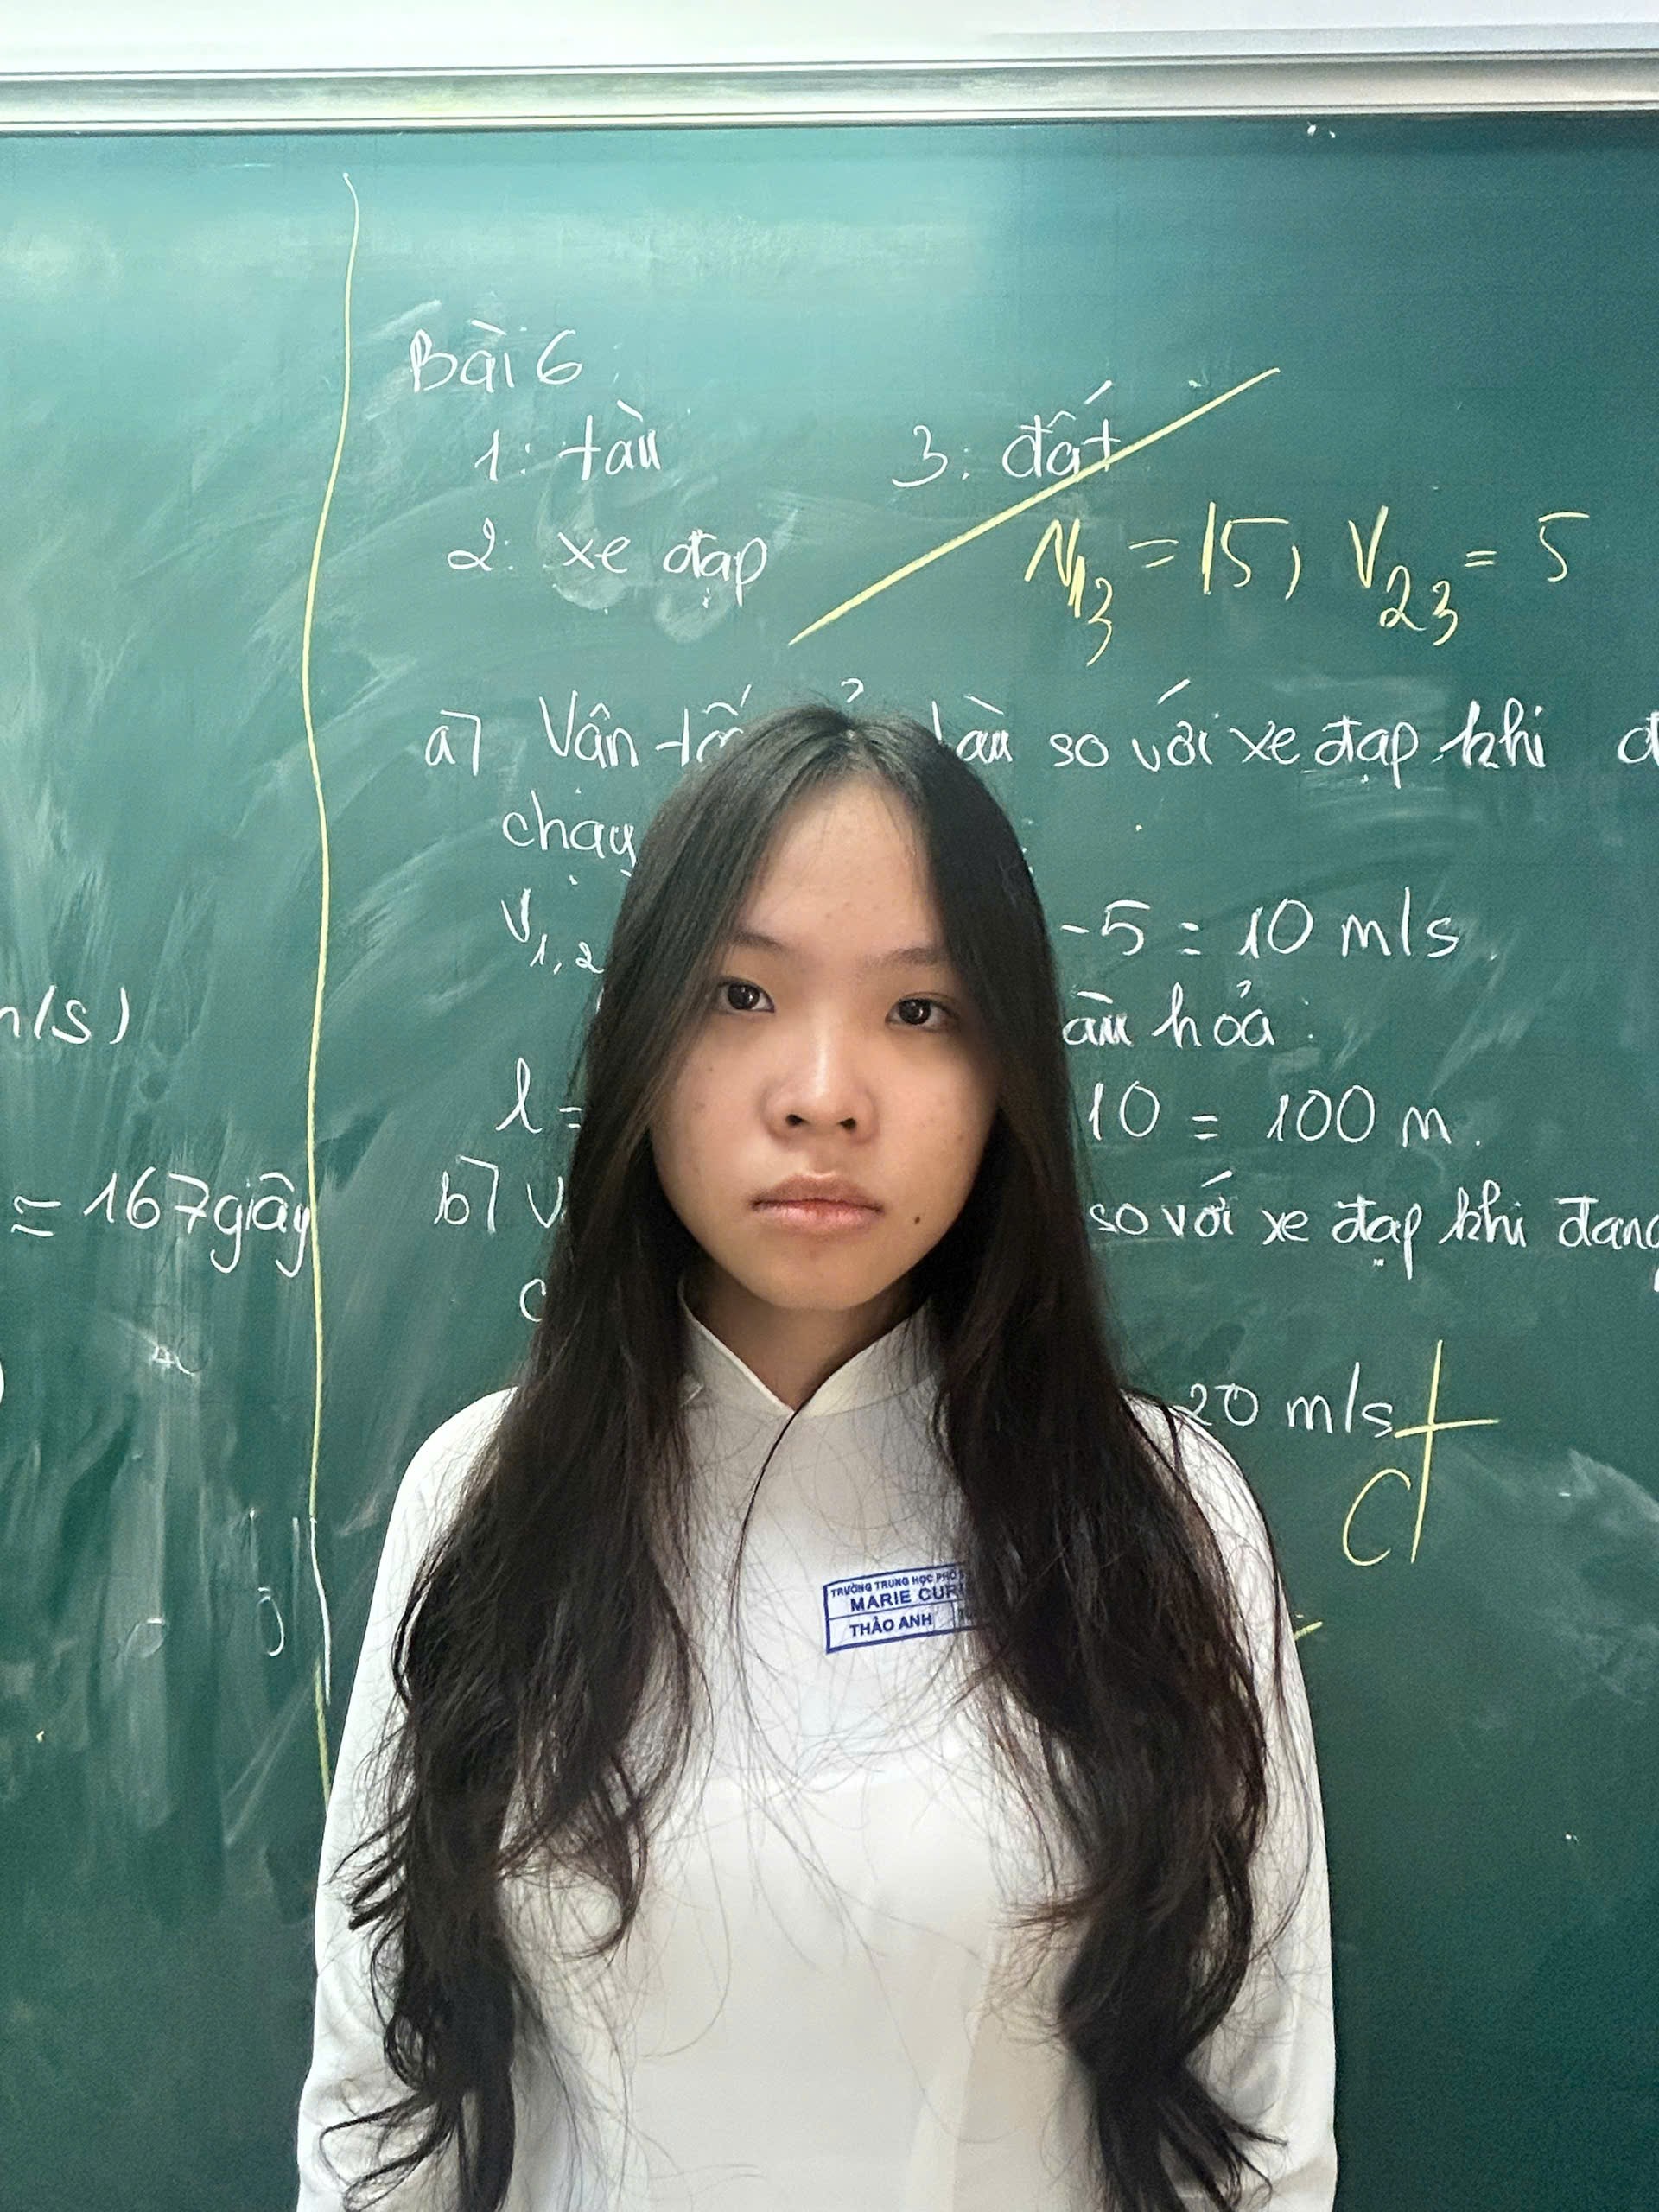 Bài 6
1: tàu 3: đất
2: xe đạp
V13 = 15, V23 = 5
a) Vận tàu so với xe đạp khi
chạy
V1,2 -5 = 10 m/s
m/s)
hỏa:
l = 10 = 100 m.
≈ 167 giây
b) so với xe đạp khi đang
20 m/s
TRƯỜNG TRUNG HỌC PHỔ
MARIE
THẢO ANH